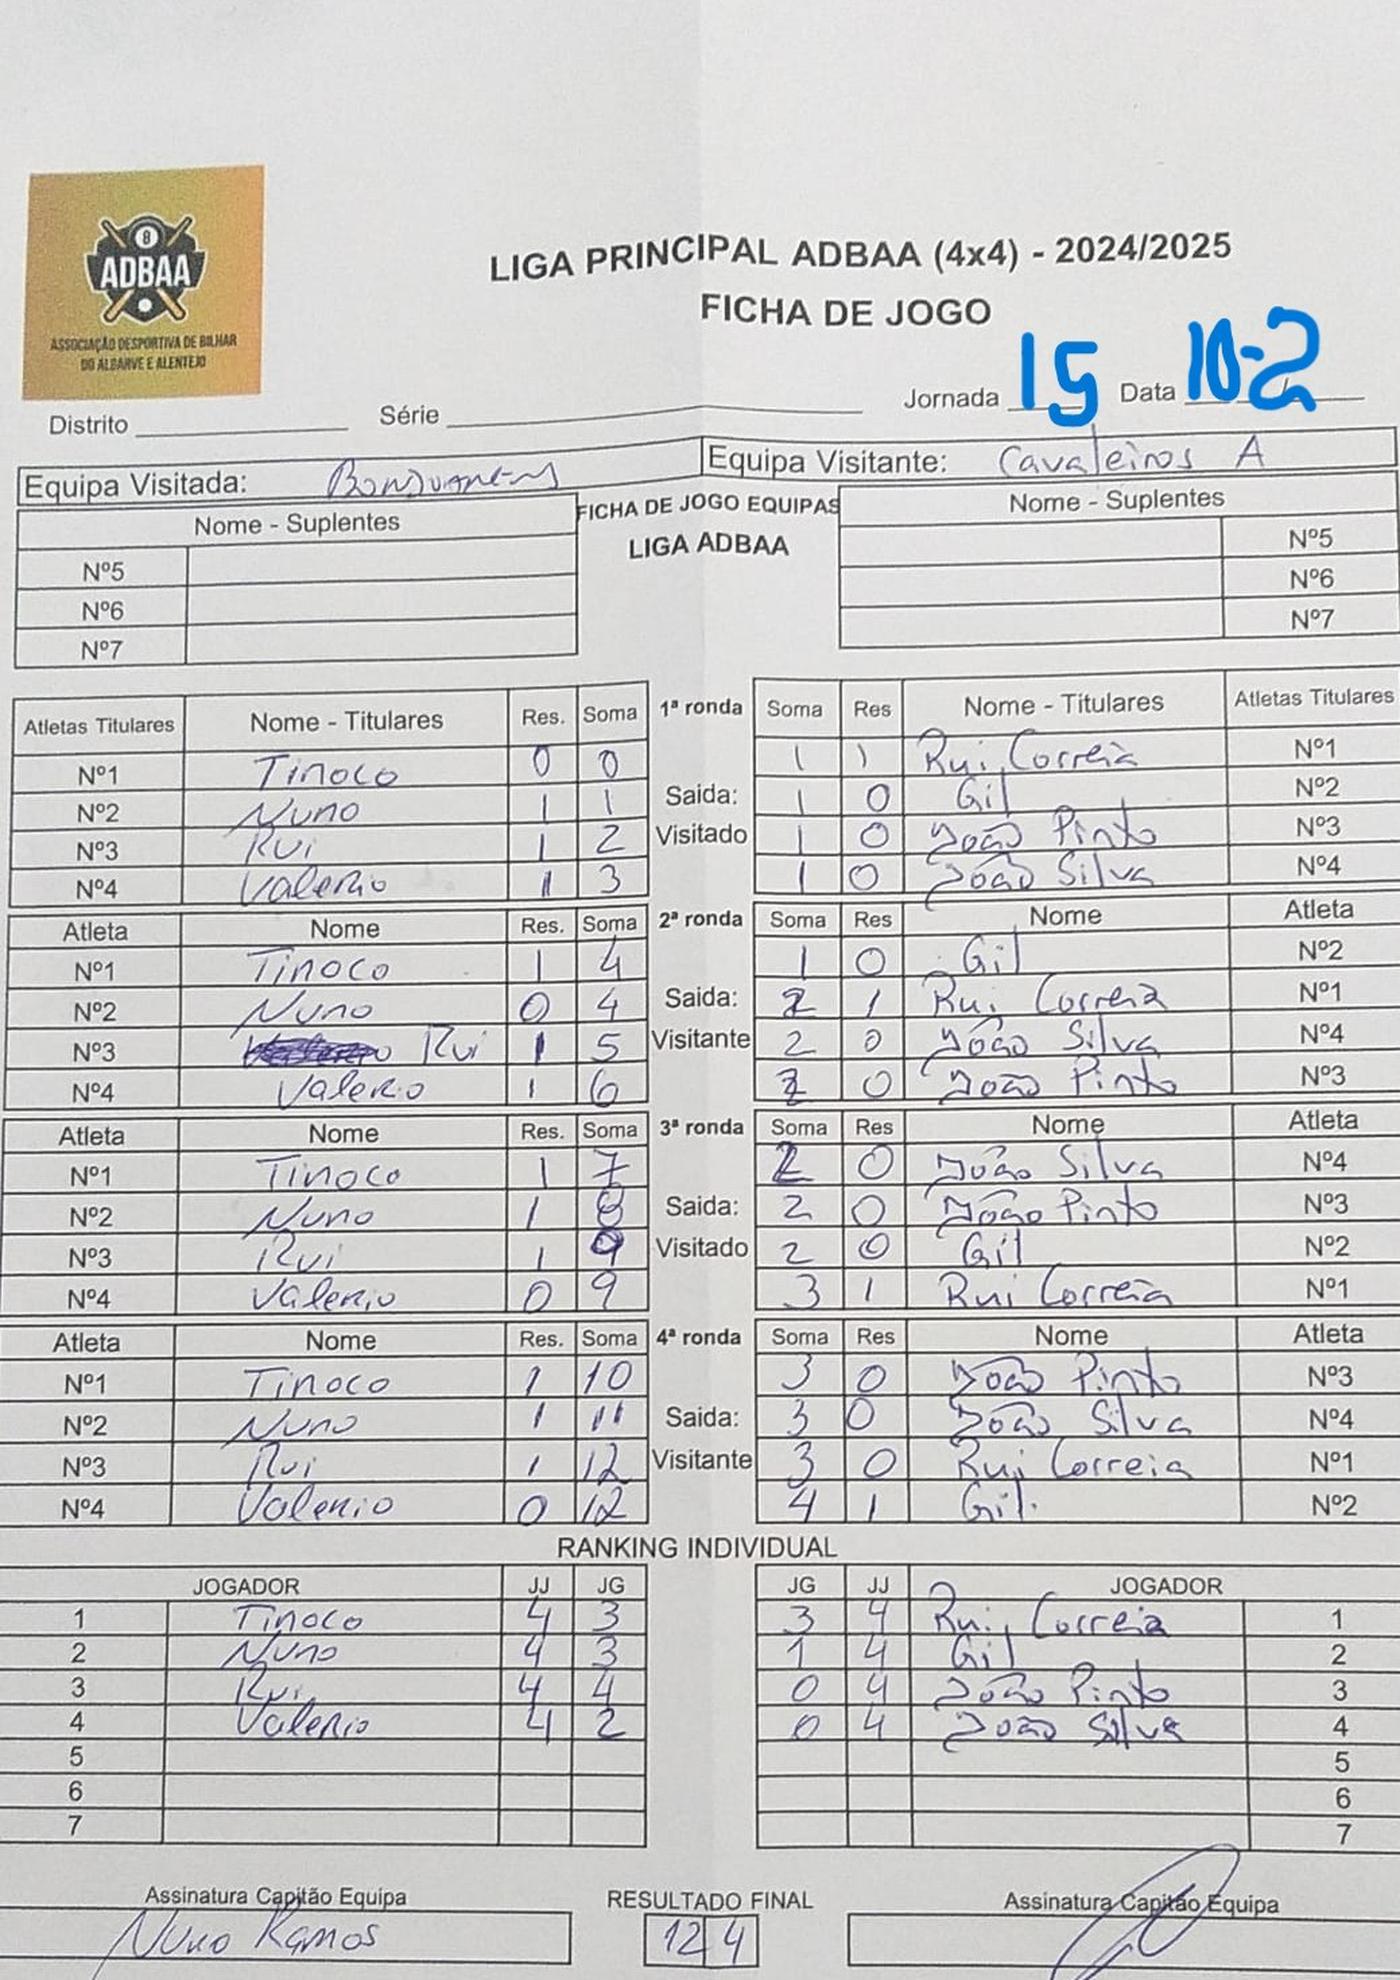 8
ADBAA
ASSOCIAÇÃO DESPORTIVA DE BILHAR
DO ALGARVE E ALENTEJO
LIGA PRINCIPAL ADBAA (4x4) - 2024/2025
FICHA DE JOGO
Distrito Série Jornada 15 Data 10-2
Equipa Visitada: Equipa Visitante: Cavaleiros A
Nome - Suplentes FICHA DE JOGO EQUIPAS Nome - Suplentes
LIGA ADBAA
Nº5 Nº5
Nº6 Nº6
Nº7 Nº7
Atletas Titulares Nome - Titulares Res. Soma 1ª ronda Soma Res Nome - Titulares Atletas Titulares
Nº1 Tinoco 0 0 1 1 Rui Correia Nº1
Nº2 Nuno 1 1 Saida: 1 0 Gil Nº2
Nº3 Rui 1 2 Visitado 1 0 João Pinto Nº3
Nº4 Valerio 1 3 1 0 João Silva Nº4
Atleta Nome Res. Soma 2ª ronda Soma Res Nome Atleta
Nº1 Tinoco 1 4 1 0 Gil Nº2
Nº2 Nuno 0 4 Saida: 2 1 Rui Correia Nº1
Nº3 Rui 1 5 Visitante 2 0 João Silva Nº4
Nº4 Valerio 1 6 2 0 João Pinto Nº3
Atleta Nome Res. Soma 3ª ronda Soma Res Nome Atleta
Nº1 Tinoco 1 7 2 0 João Silva Nº4
Nº2 Nuno 1 8 Saida: 2 0 João Pinto Nº3
Nº3 Rui 1 9 Visitado 2 0 Gil Nº2
Nº4 Valerio 0 9 3 1 Rui Correia Nº1
Atleta Nome Res. Soma 4ª ronda Soma Res Nome Atleta
Nº1 Tinoco 1 10 3 0 João Pinto Nº3
Nº2 Nuno 1 11 Saida: 3 0 João Silva Nº4
Nº3 Rui 1 12 Visitante 3 0 Rui Correia Nº1
Nº4 Valerio 0 12 4 1 Gil. Nº2
RANKING INDIVIDUAL
JOGADOR JJ JG JG JJ JOGADOR
1 Tinoco 4 3 3 4 Rui Correia 1
2 Nuno 4 3 1 4 Gil 2
3 Rui 4 4 0 4 João Pinto 3
4 Valerio 4 2 0 4 João Silva 4
5 5
6 6
7 7
Assinatura Capitão Equipa RESULTADO FINAL Assinatura Capitão Equipa
Nuno Ramos 12 4